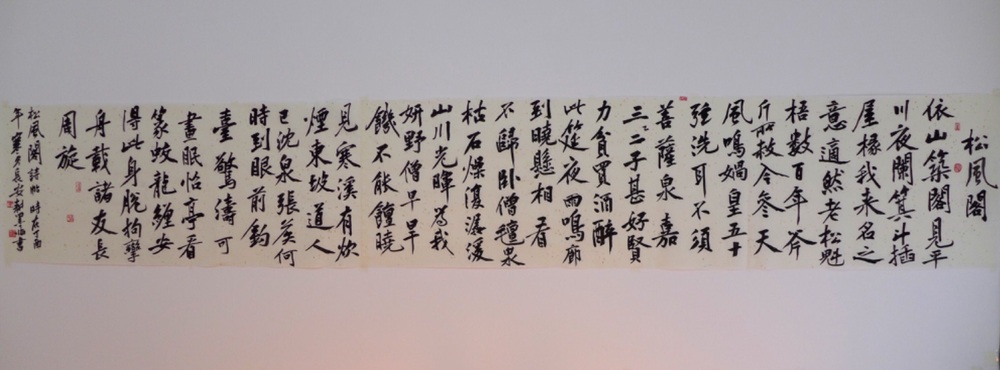 松風閣
依山築閣見平
川夜闌箕斗插
屋椽我来名之
意適然老松魁
梧數百年斧
斤所赦今參天
風鳴媧皇五十
弦洗耳不須
菩薩泉嘉
三二子甚好賢
力貧買酒醉
此筵夜雨鳴廊
到曉懸相看
不歸卧僧氈泉
枯石燥復潺湲
山川光暉為我
妍野僧早旱
饑不能饘曉
見寒溪有炊
煙東坡道人
已沈泉張侯何
時到眼前釣
臺驚濤可
晝眠怡亭看
篆蛟龍纏安
得此身脱拘攣
舟載諸友長
周旋
松風閣詩帖時在丁酉
年寒冬長安書